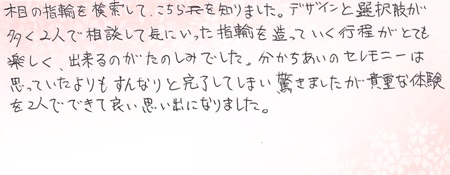 木目の指輪を検索して、こちらを知りました。デザインと選択肢が
多く2人で相談して気にいった指輪を造っていく行程がとても
楽しく、出来るのがたのしみでした。分かちあいのセレモニーは
思っていたよりもすんなりと完了してしまい驚きましたが貴重な体験
を2人でできて良い思い出になりました。